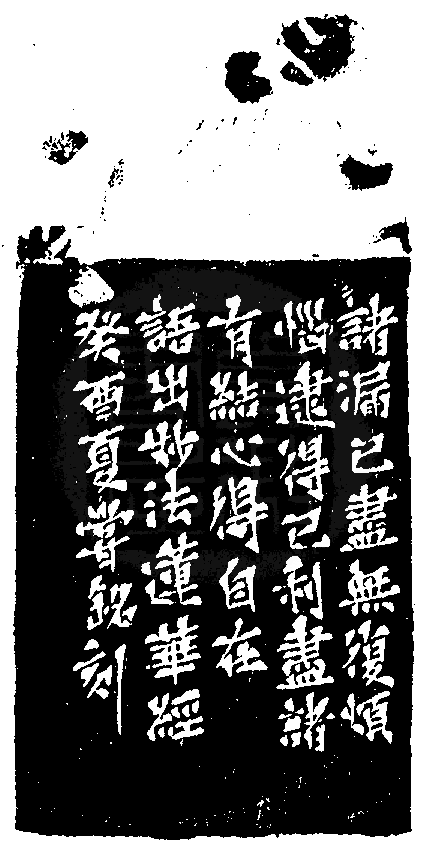 諸漏已盡無復煩
惱逮得己利盡諸
有結心得自在
語出妙法蓮華經
癸酉夏掌銘刻